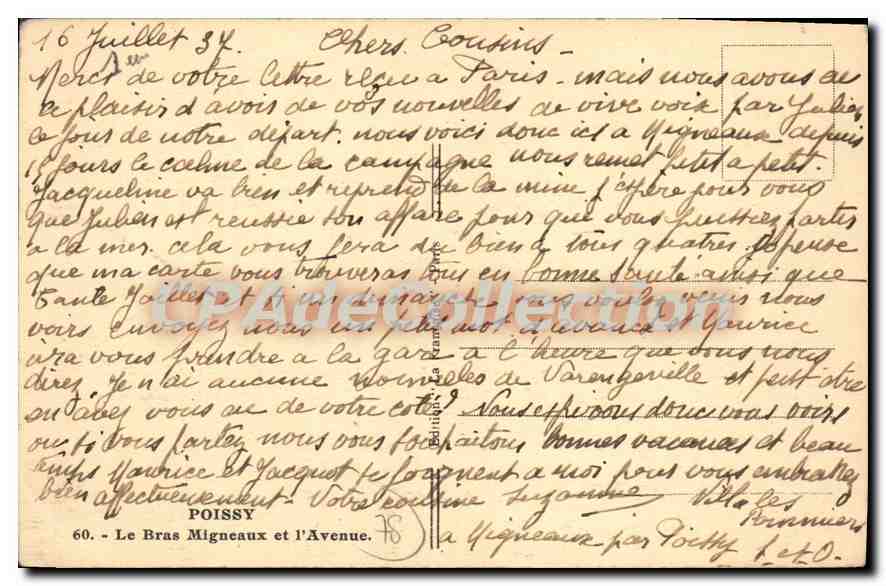 16 Juillet 37. Chers Cousins -
Merci de votre lettre reçu a Paris - mais nous avons eu
le plaisir d avoir de vos nouvelles de vive voix par Julien
le jour de notre départ. nous voici donc ici a Migneaux depuis
15 jours le calme de la campagne nous remet petit a petit.
Jacqueline va bien et reprend de la mine j'espère pour vous
que Julien est reussie son affaire pour que vous puissiez partir
a la mer. cela vous fera du bien a tous quatres. je pense
que ma carte vous trouveras tous en bonne santé ainsi que
Tante Juillet et si un dimanche vous voulez venir nous
voir envoyez nous un petit mot d'avance et Maurice
ira vous prendre a la gare a l'heure que vous nous
direz. Je n ai aucune nouvelles de Varengeville et peut etre
en avez vous eu de votre coté? Nous espérons donc vous voir
ou si vous partez nous vous souhaitons bonnes vacances et beau
temps Maurice et Jacquot se joignent a moi pour vous embrasser
bien affectueusement - Votre cousine Suzanne Villa les
Pommiers
a Migneaux par Poissy S. et O.
POISSY
60. - Le Bras Migneaux et l'Avenue.
78
Edition "La Française" - Paris
CPAdeCollection